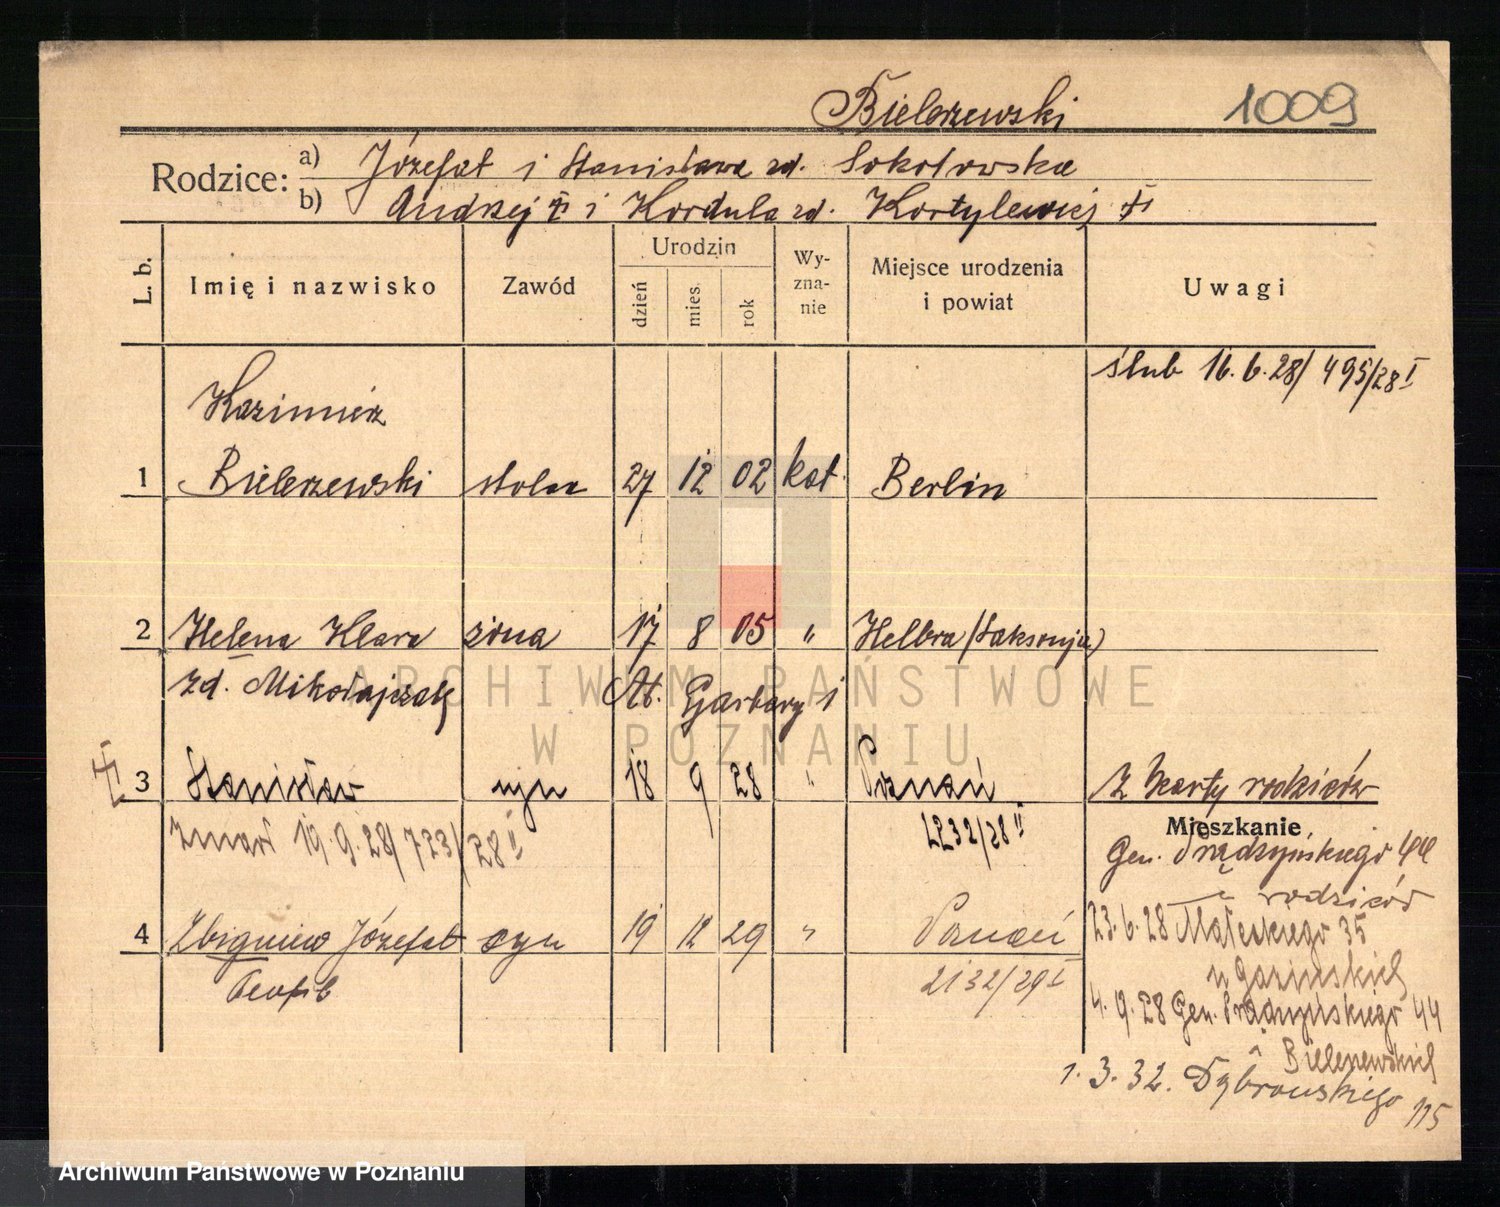 Bielerzewski 1009
Rodzice: a) Józefat i Stanisława zd. Sokołowska
b) Andrzej i Kordula zd. Kortylewicz
L. b. Imię i nazwisko Zawód Urodzin dzień mies. rok Wy-zna-nie Miejsce urodzenia i powiat Uwagi
ślub 16.6.28/495/28 I
Kazimierz
1 Bielerzewski stolarz 27 12 02 kat. Berlin
2 Helena Klara żona 17 8 05 " Helbra (Saksonja)
zd. Mikołajczak St. Garbary 1
3 Stanisław syn 18 9 28 " Poznań z karty rodziców
zmarł 19.9.28/723/28 I 2232/28 II
Mieszkanie
Gen. Prądzyńskiego 44
u rodziców
4 Zbigniew Józefat syn 19 12 29 " Poznań
Teofil 2132/29 I
23.6.28 Małeckiego 35
4.9.28 Gen. Prądzyńskiego 44
Bielerzewskich
1.3.32. Dąbrowskiego 115
ARCHIWUM PAŃSTWOWE
W POZNANIU
Archiwum Państwowe w Poznaniu